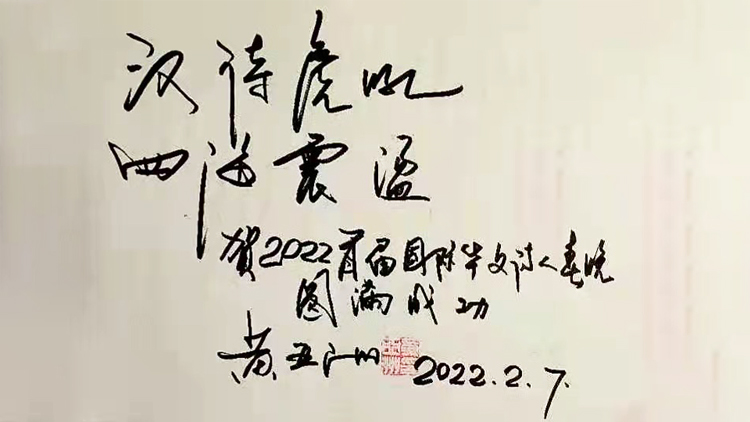 汉诗虎吼
四海震盪
贺2022首届国际华文诗人春晚
圆满成功
黄亚洲 2022.2.7.